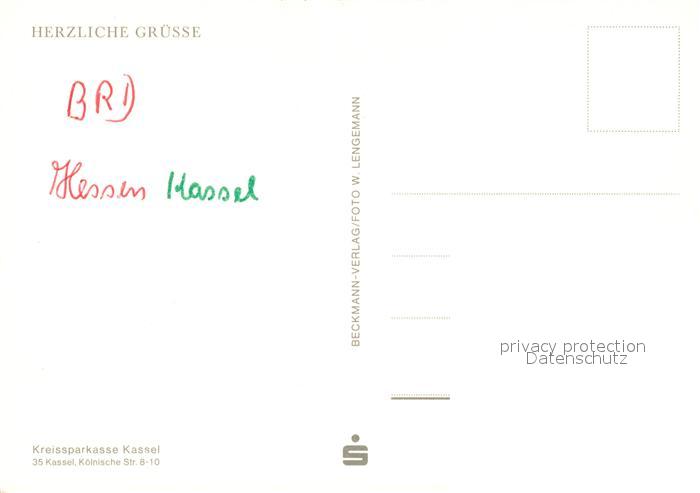 HERZLICHE GRÜSSE
BRD
Hessen Kassel
Kreissparkasse Kassel
35 Kassel, Kölnische Str. 8-10
BECKMANN-VERLAG/FOTO W. LENGEMANN
privacy protection
Datenschutz